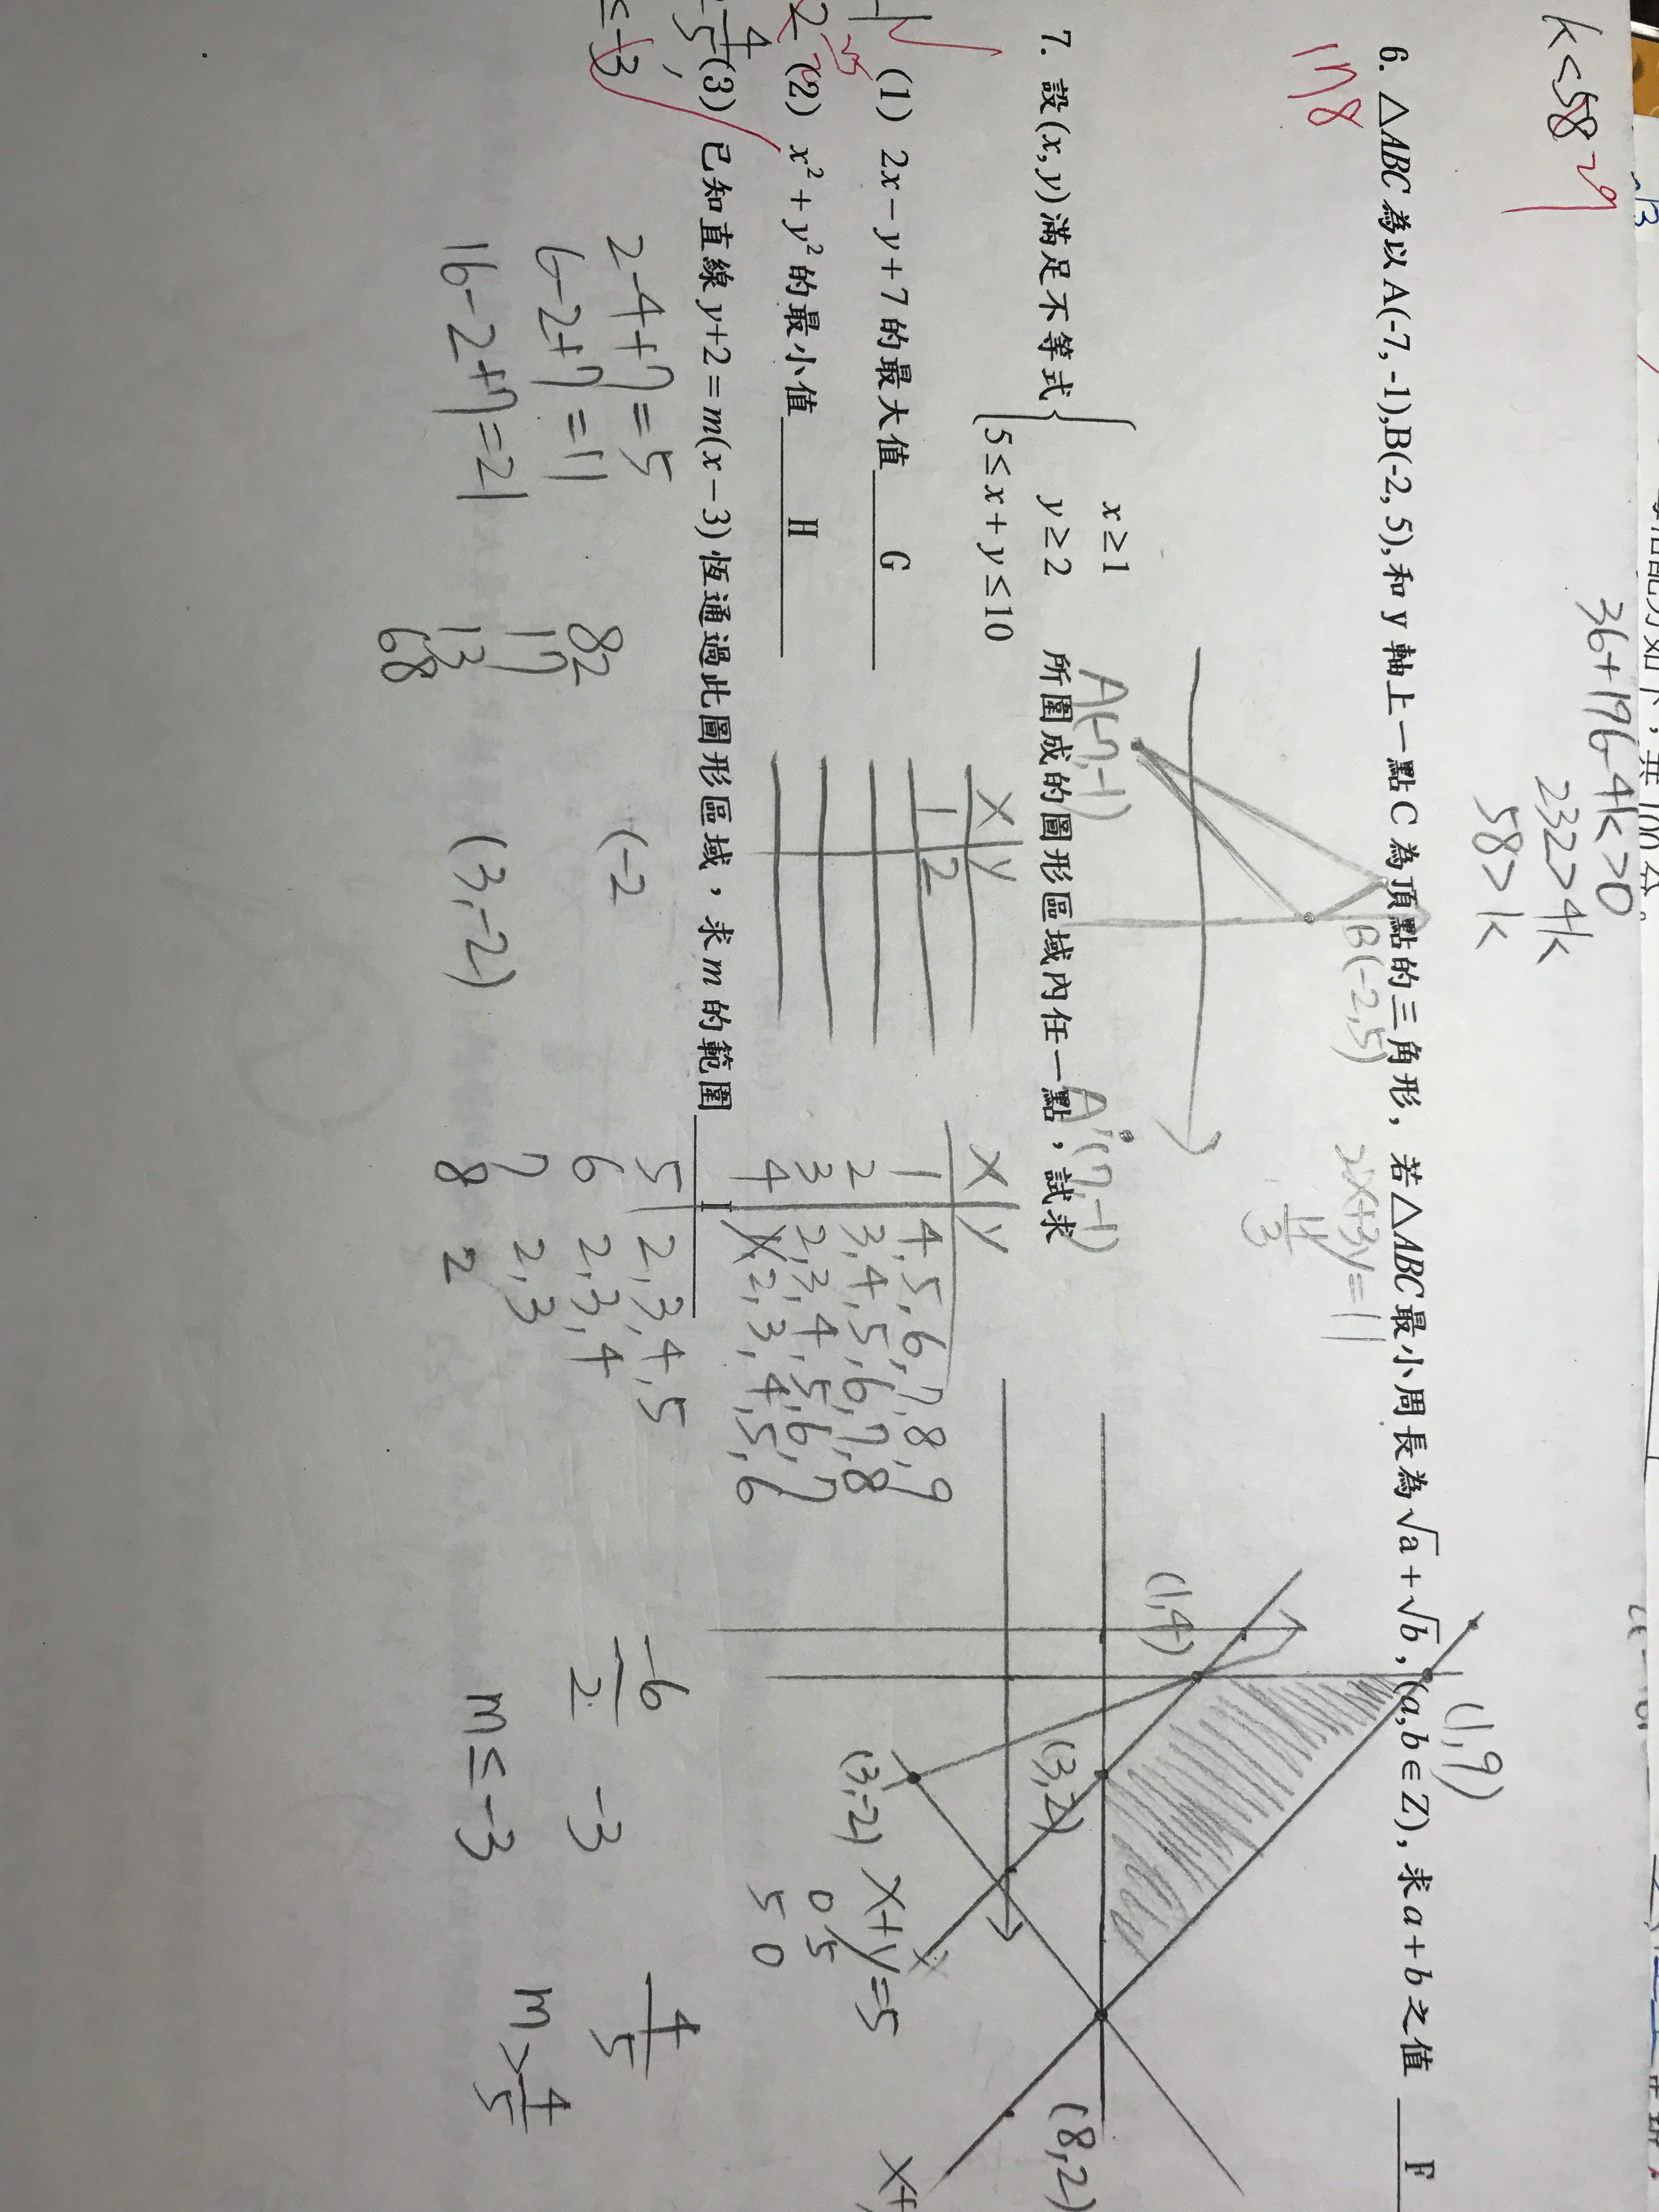 36+196-4k>0
232>4k
58>k
k<58 29
6. △ABC 為以 A(-7, -1),B(-2, 5),和 y 軸上一點 C 為頂點的三角形，若△ABC 最小周長為√a+√b，(a,b∈Z)，求 a+b 之值 F
178
B(-2,5)
2x+3y=11
11/3
A(-7,-1)
A'(7,-1)
7. 設(x,y)滿足不等式{ x≥1
y≥2
5≤x+y≤10
所圍成的圖形區域內任一點，試求
(1) 2x-y+7的最大值 G
(2) x²+y²的最小值 H
(3) 已知直線y+2=m(x-3)恆通過此圖形區域，求m的範圍 I
2-4+7=5
6-2+7=11
16-2+7=21
82
17
13
68
(-2
(3,-2)
x y
1 2
x y
1 4,5,6,7,8,9
2 3,4,5,6,7,8
3 2,3,4,5,6,7
4 2,3,4,5,6
5 2,3,4,5
6 2,3,4
7 2,3
8 2
(1,9)
(1,4)
(3,2)
(3,-2)
(8,2)
x+y=5
0 5
5 0
x+
-6/2 -3
m≤-3
4/5
m>4/5